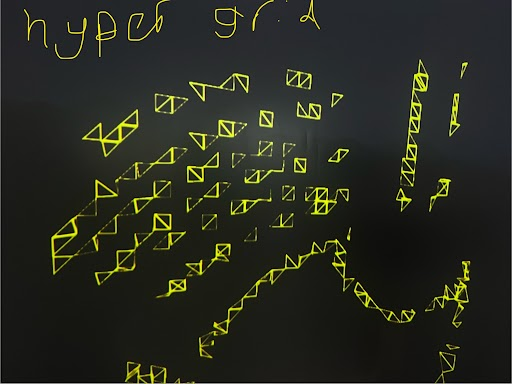 hyper grid